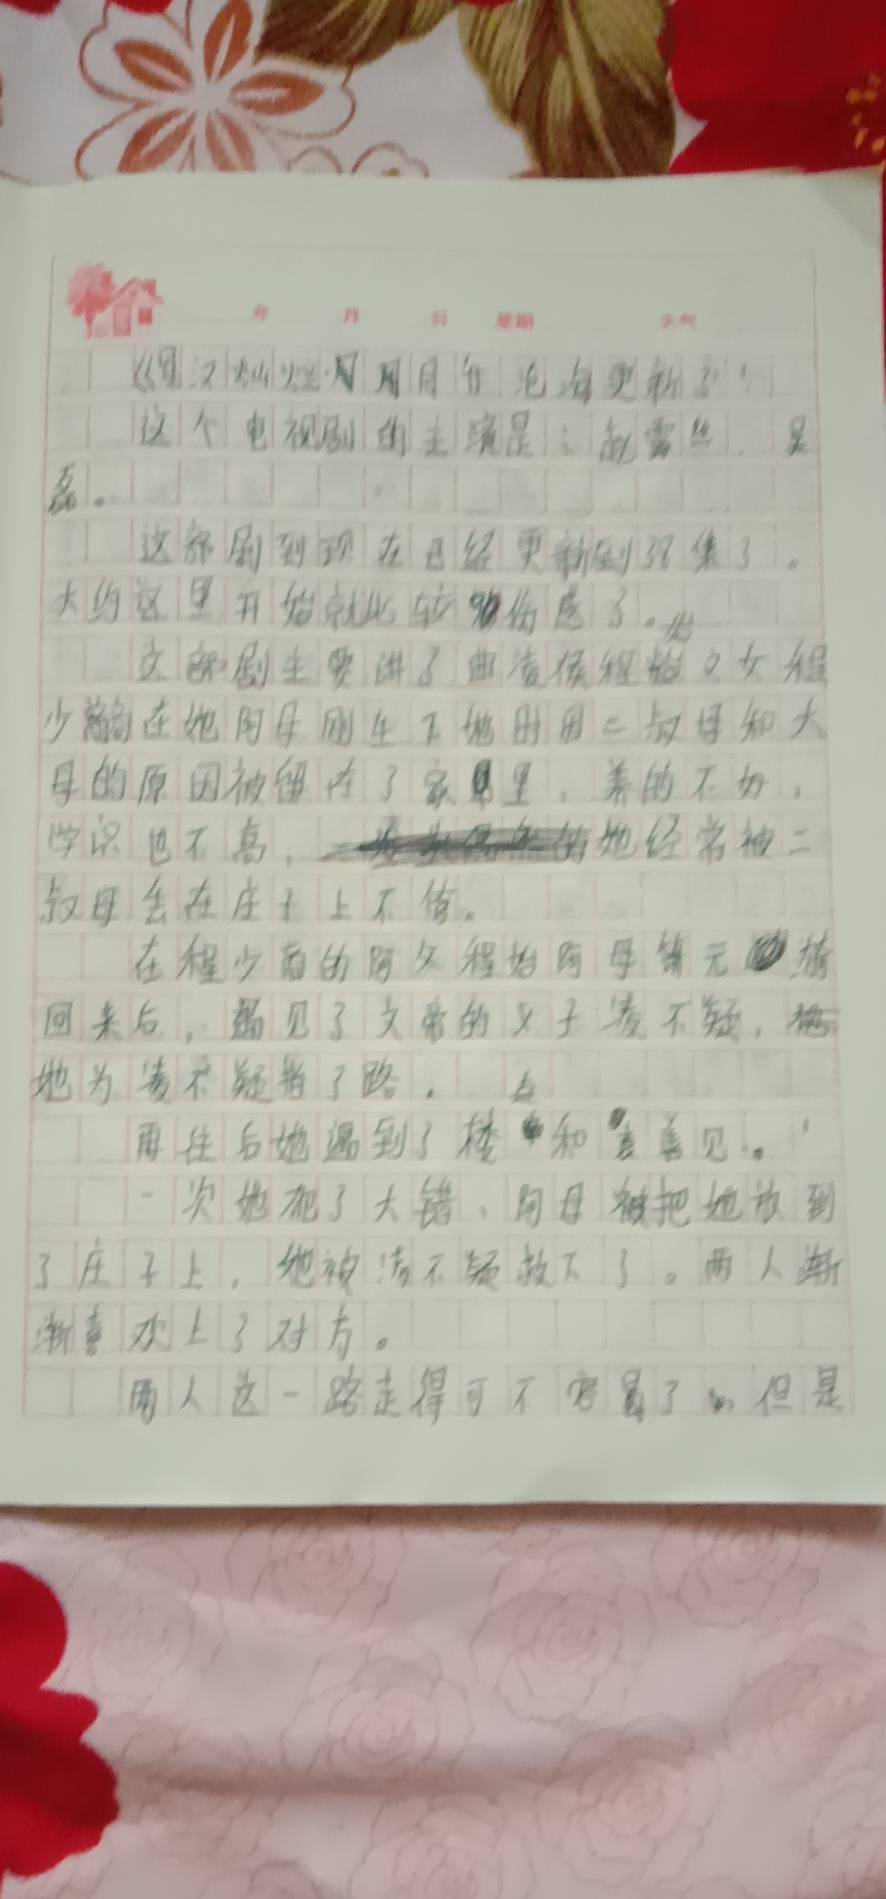 年 月 日 星期 天气
汉灿烂·月 月月 更新了!
这个电视剧的主演是:赵露丝、吴
磊。
这部剧到现在已经更新到38集了。
大约这里开始就比较伤感了。
这部剧主要讲了曲凌侯程始之女程
少商在她阿母刚生下她时因二叔母和大
母的原因被留在了家里,养的不好,
学识也不高, 她经常被二
叔母丢在庄子上不管。
在程少商的阿父程始阿母萧元漪
回来后,遇见了文帝的义子凌不疑,
她为凌不疑指了路。
再往后她遇到了楼 和袁善见。
一次她犯了大错、阿母被把她放到
了庄子上,她被凌不疑救下了。两人渐
渐喜欢上了对方。
两人这一路走得可不容易了 但是